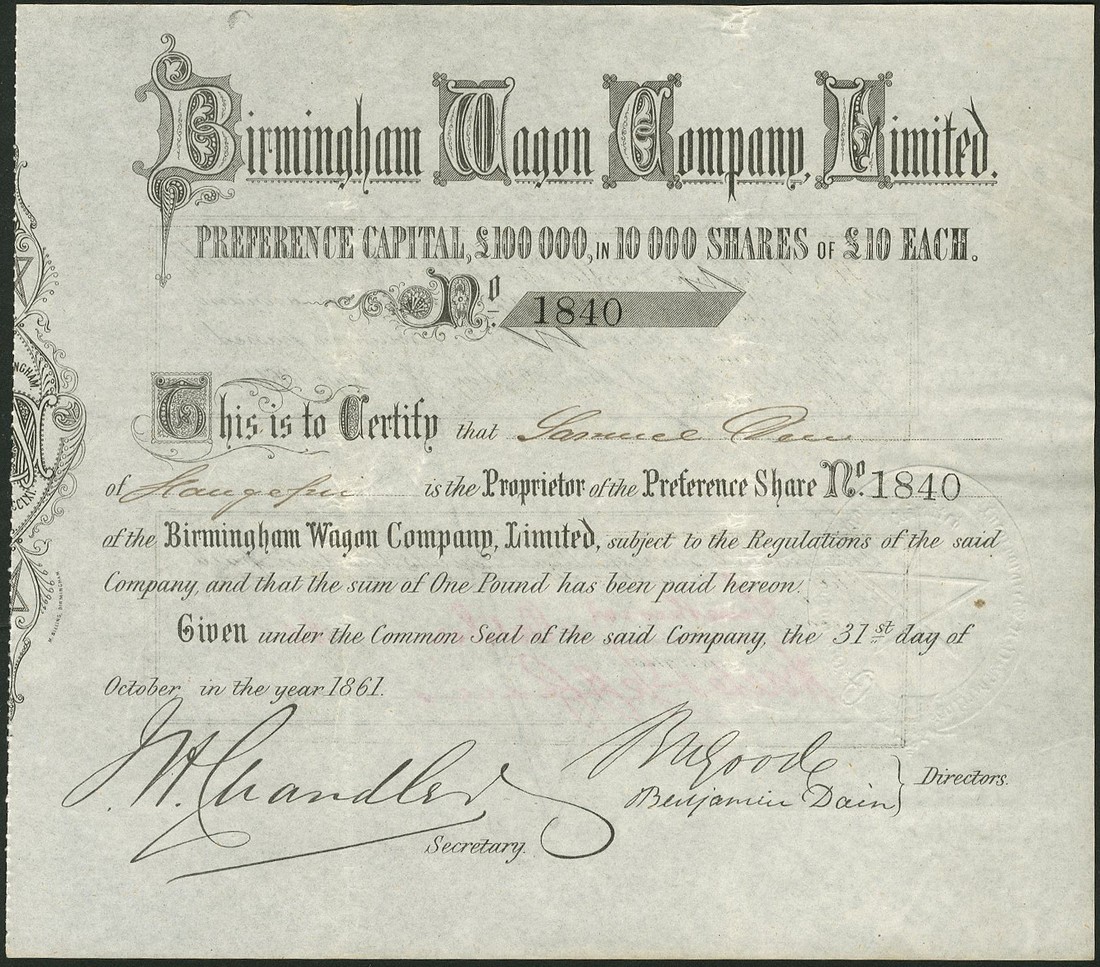 Birmingham Wagon Company, Limited.
PREFERENCE CAPITAL, £100 000, IN 10 000 SHARES OF £10 EACH.
No. 1840
This is to Certify that Samuel
of is the Proprietor of the Preference Share No. 1840
of the Birmingham Wagon Company, Limited, subject to the Regulations of the said
Company, and that the sum of One Pound has been paid hereon.
Given under the Common Seal of the said Company, the 31st day of
October, in the year 1861.
J. H. Chandler
Secretary.
Benjamin Dain
Directors.